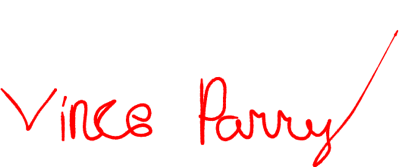 Vince Parry